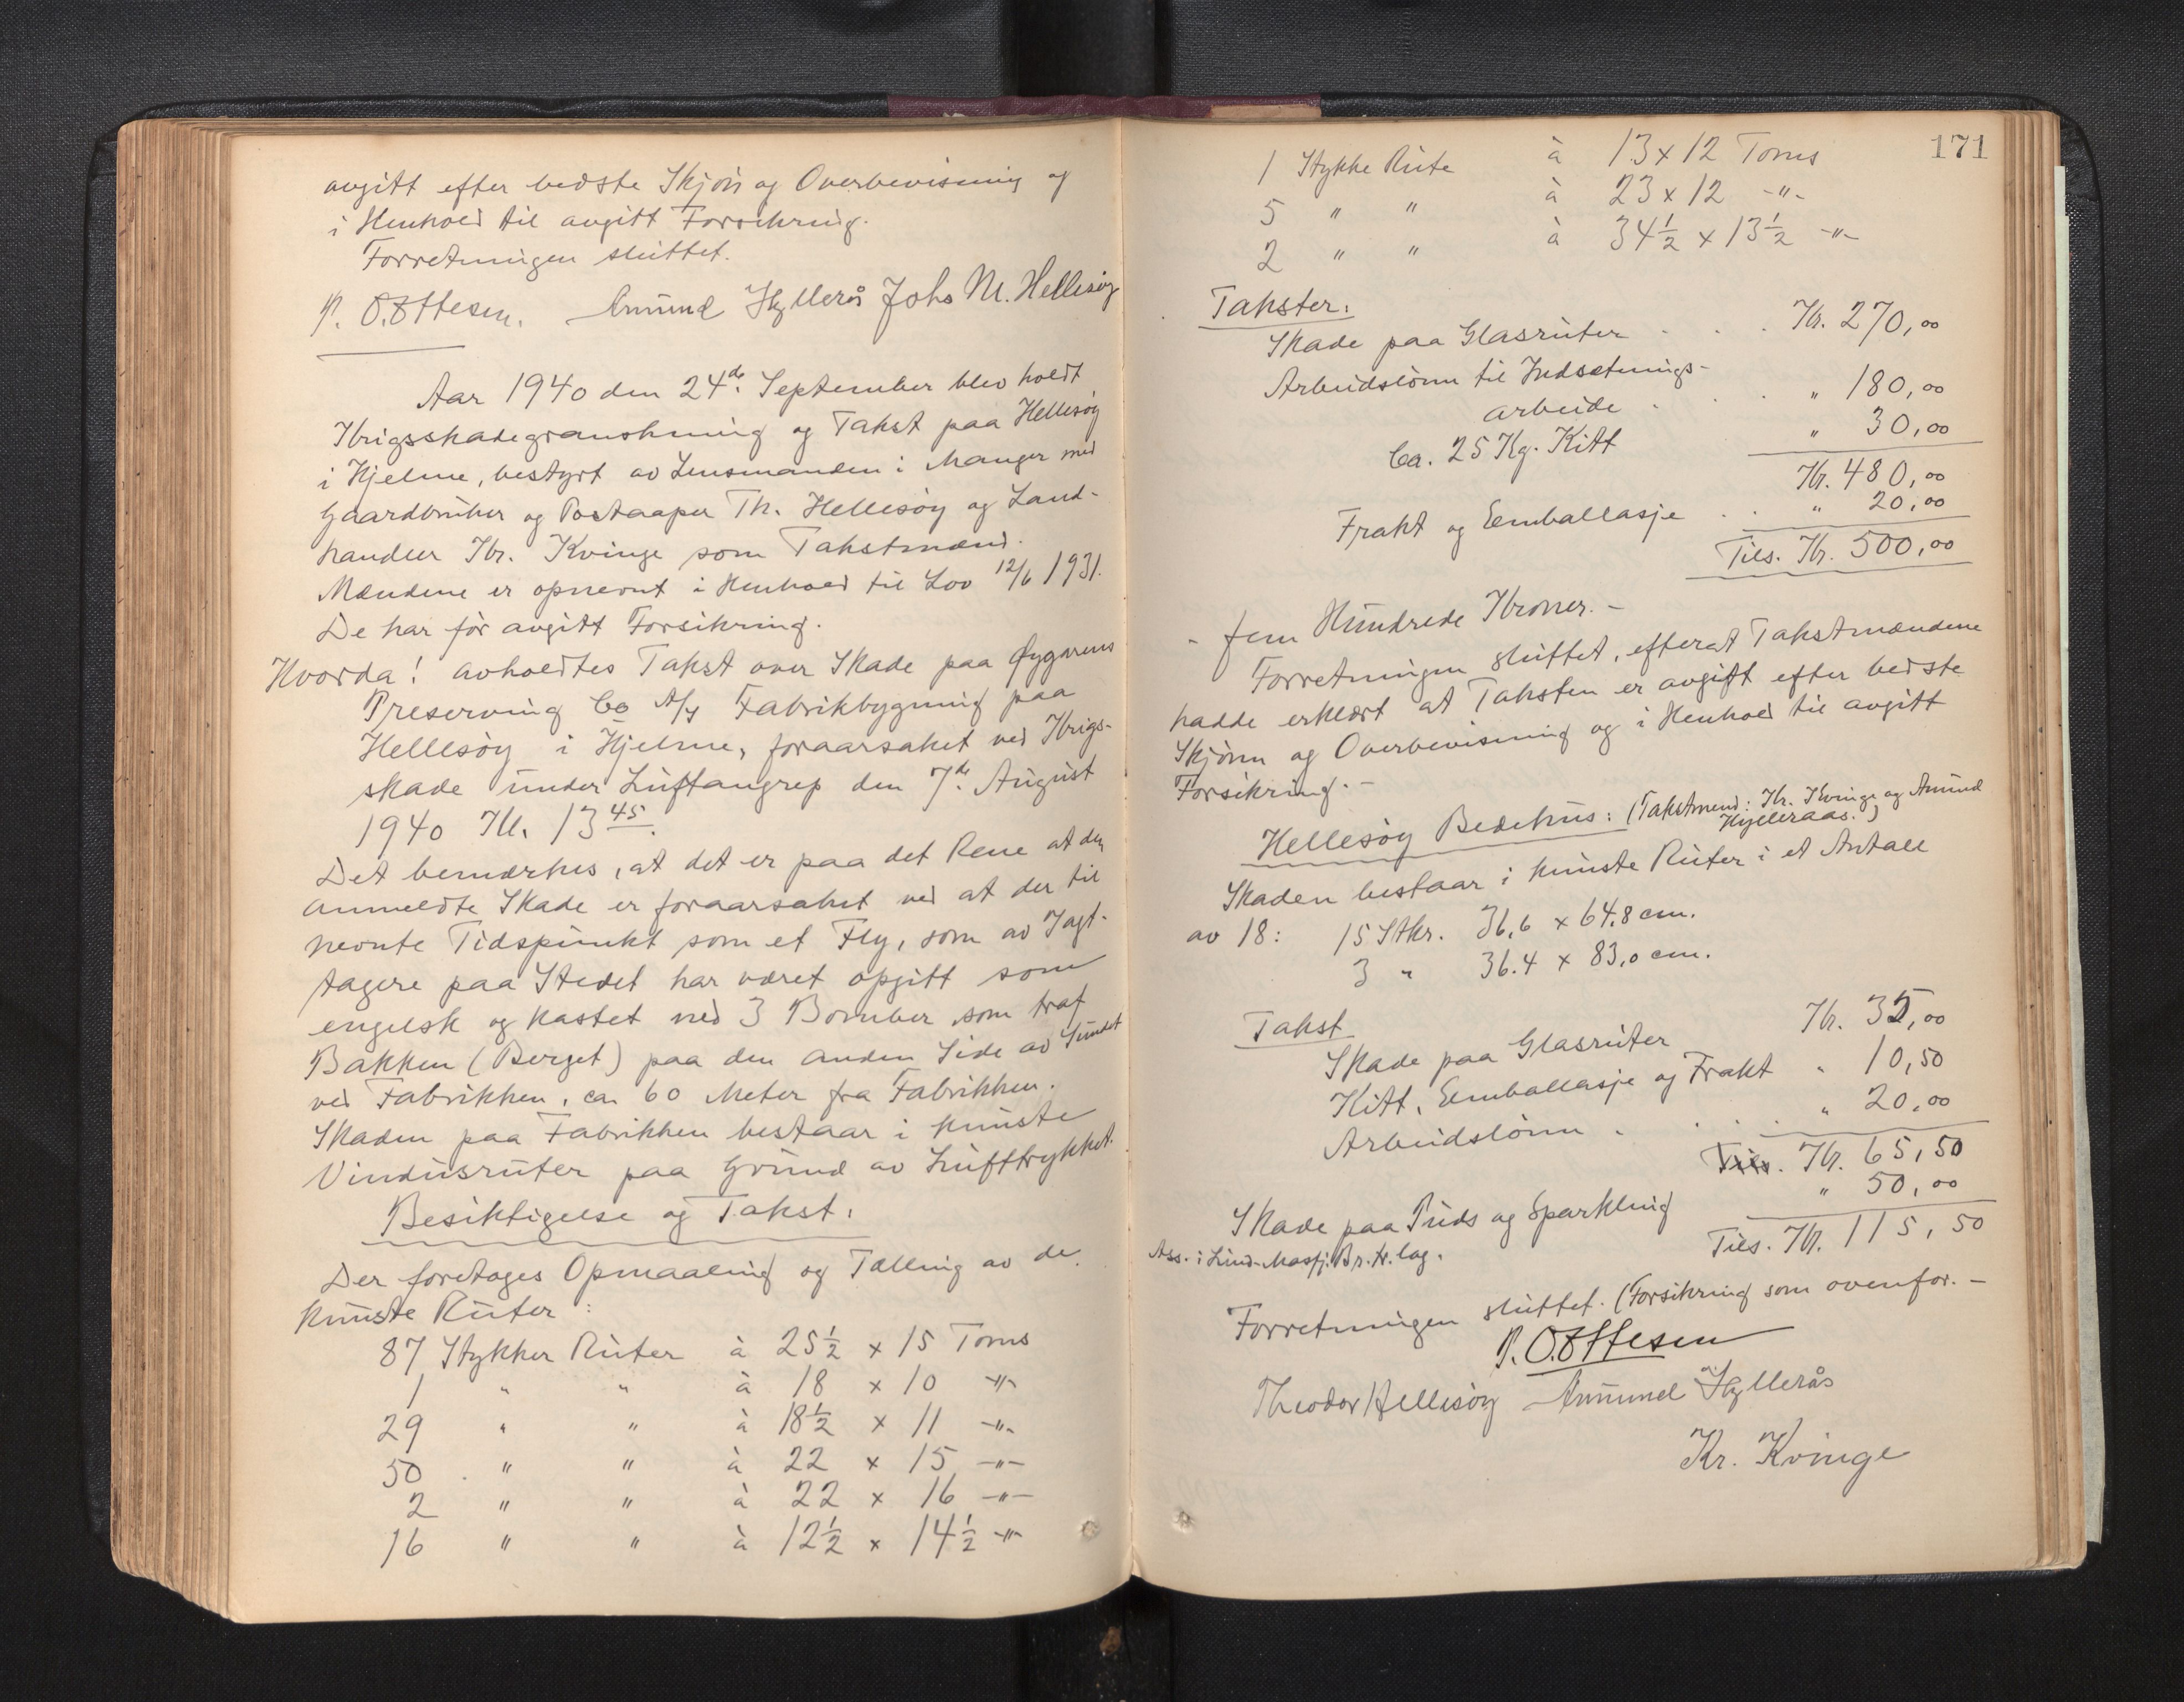 avgitt efter bedste Skjøn og Overbevisning og
i Henhold til avgitt Forsikring.
Forretningen sluttet.
P. O. Ottesen. Amund Hyllerås Johs M. Hellesøy
Aar 1940 den 24de September blev holdt
Krigsskadegranskning og Takst paa Hellesøy
i Hjelme, bestyrt av Lensmanden i Manger med
Gaardbruker og Postaaper Th. Hellesøy og Land-
handler Kr. Kvinge som Takstmænd.
Mændene er opnevnt i Henhold til Lov 12/6 1931.
De har før avgitt Forsikring.
Hvorda! avholdtes Takst over Skade paa Øygarens
Preserving Co A/S Fabrikbygning paa
Hellesøy i Hjelme, foraarsaket ved Krigs-
skade under Luftangrep den 7de August
1940 Kl. 13 45.
Det bemærkes, at det er paa det Rene at den
anmeldte Skade er foraarsaket ved at der til
nevnte Tidspunkt som et Fly, som av Iagt-
tagere paa Stedet har været opgitt som
engelsk og kastet ned 3 Bomber som traf
Bakken (Berget) paa den anden Side av Sundet
ved Fabrikken, ca 60 Meter fra Fabrikken.
Skaden paa Fabrikken bestaar i knuste
Vindusruter paa Grund av Lufttrykket.
Besiktigelse og Takst.
Der foretages Opmaaling og Tælling av de
knuste Ruter:
87 Stykker Ruter à 25½ x 15 Toms
1 " " à 18 x 10 -"-
29 " " à 18½ x 11 -"-
50 " " à 22 x 15 -"-
2 " " à 22 x 16 -"-
16 " " à 12½ x 14½ -"-
171
1 Stykke Rute à 13 x 12 Toms
5 " " à 23 x 12 -"-
2 " " à 34½ x 13½ -"-
Takster:
Skade paa Glasruter . . . Kr. 270,00
Arbeidslønn til Indsætnings-
arbeide . . . " 180,00
Ca. 25 Kg. Kitt " 30,00
Kr. 480,00
Frakt og Eemballasje . . " 20,00
Tils. Kr. 500,00
- fem Hundrede Kroner. -
Forretningen sluttet, efterat Takstmændene
hadde erklært at Taksten er avgitt efter bedste
Skjønn og Overbevisning og i Henhold til avgitt
Forsikring. -
Hellesøy Bedehus: (Takstmend: Kr. Kvinge og Amund
Hylleraas.)
Skaden bestaar i knuste Ruter i et Antall
av 18: 15 Stkr. 36,6 x 64,8 cm.
3 " 36.4 x 83,0 cm.
Takst
Skade paa Glasruter Kr. 35,00
Kitt, Eemballasje og Frakt " 10,50
Arbeidslønn . . . . " 20,00
Tils. Kr. 65,50
Skade paa Puds og Sparkling " 50,00
Ass. i Lind-Masfj. Br. tr. lag. Tils. Kr. 115,50
Forretningen sluttet. (Forsikring som ovenfor. -
P. O. Ottesen
Theodor Hellesøy Amund Hyllerås
Kr. Kvinge